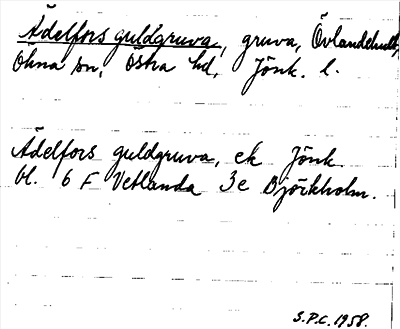 Ädelfors guldgruva, gruva, Övlandehult,
Ökna sn, Östra hd, Jönk. l.
Ädelfors guldgruva, ek Jönk.
bl. 6 F Vetlanda 3e Björkholm.
S.P.C. 1958.